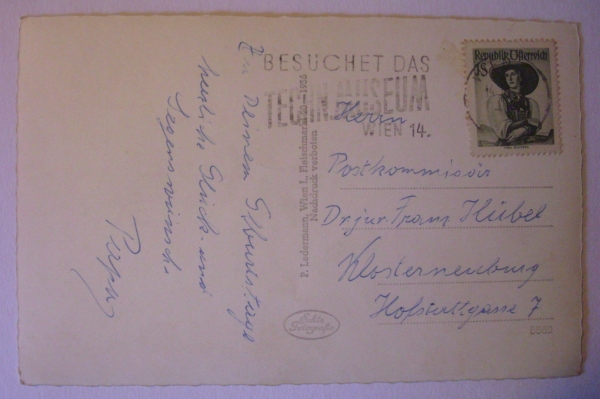 BESUCHET DAS
TECHN. MUSEUM
WIEN 14.
Republik Österreich
Zu Deinem Geburtstage
herzliche Glück- und
Segenswünsche
P. Ledermann, Wien I., Fleischmarkt 20—1955
Nachdruck verboten
Echte
Fotografie
Herrn
Postkommissär
Dr. jur. Franz Hübel
Klosterneuburg
Hofstattgasse 7